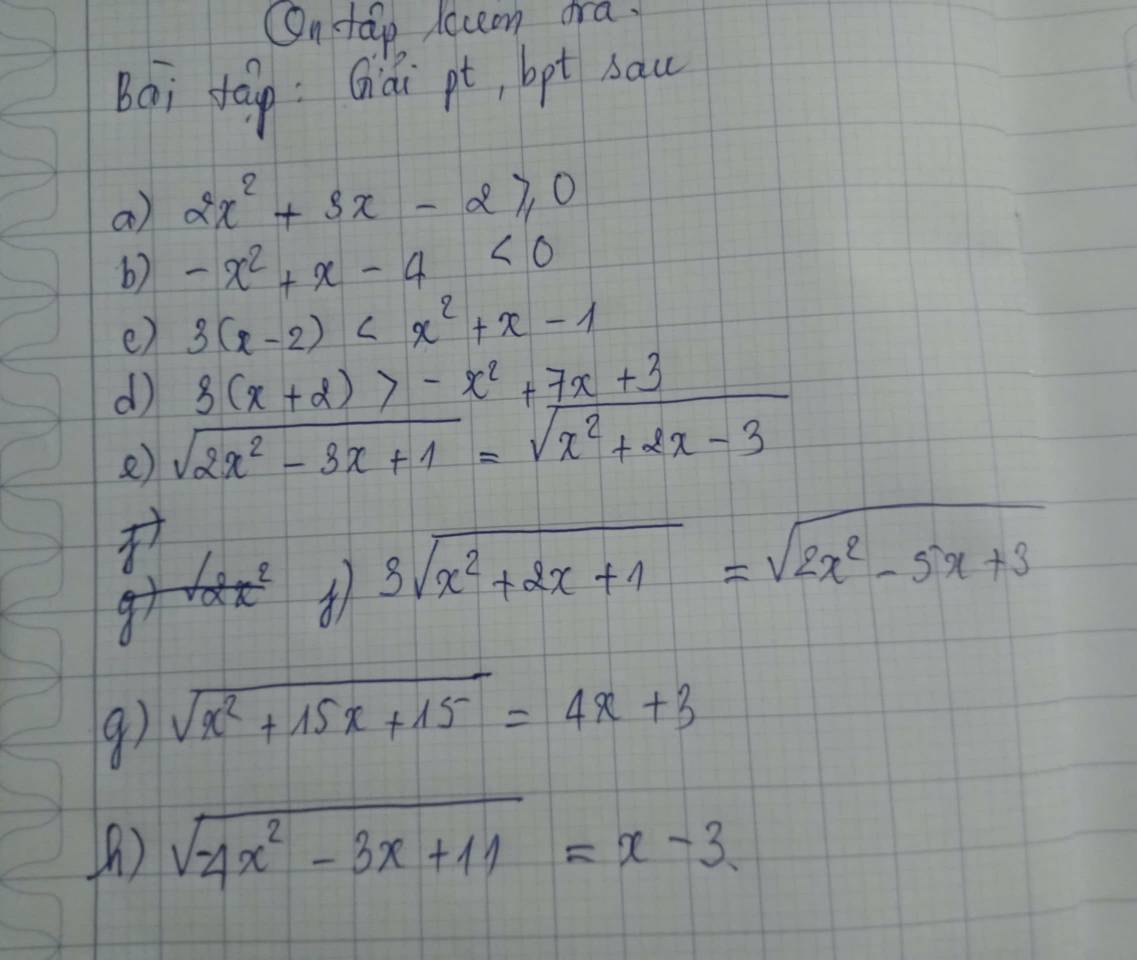 Ôn tập kiểm tra.
Bài tập: Giải pt, bpt sau
a) 2x² + 3x - 2 ⩾ 0
b) -x² + x - 4 < 0
c) 3(x-2) < x² + x - 1
d) 3(x+2) > -x² + 7x + 3
e) √(2x² - 3x + 1) = √(x² + 2x - 3)
f)
g) √2x² f) 3√(x² + 2x + 1) = √(2x² - 5x + 3)
g) √(x² + 15x + 15) = 4x + 3
h) √(-4x² - 3x + 11) = x - 3.